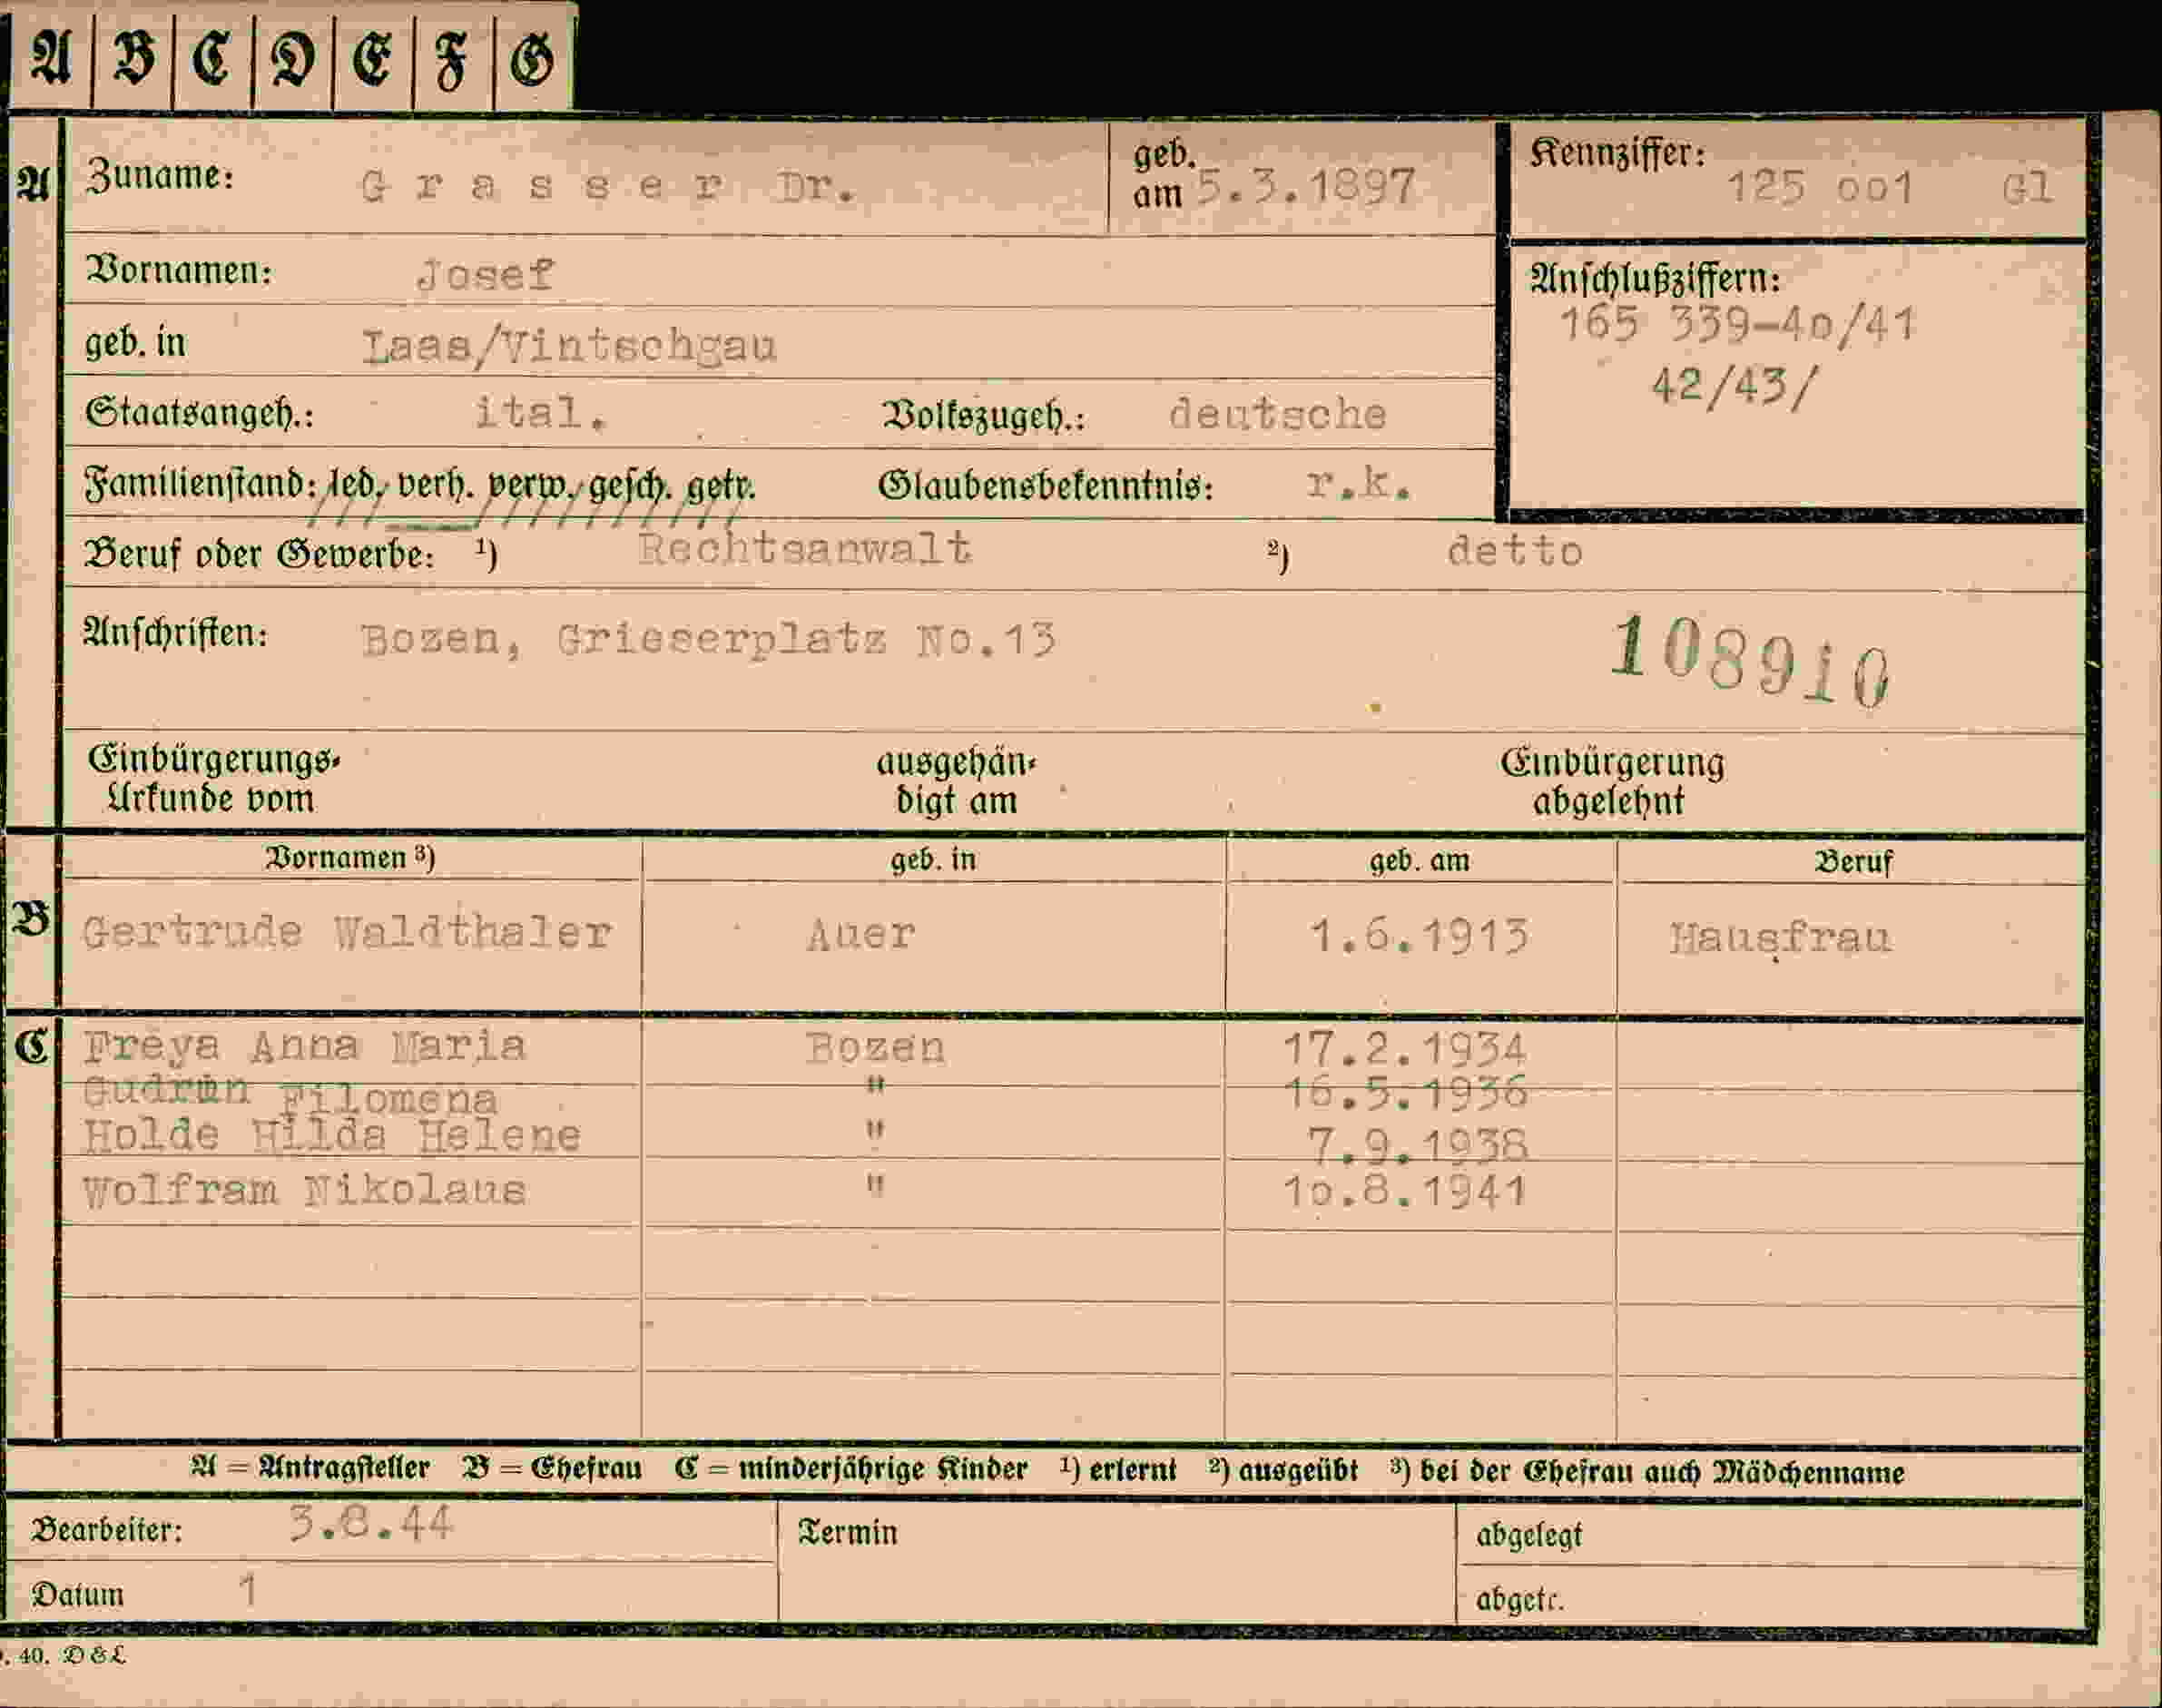 A B C D E F G
A Zuname: Grasser Dr. geb. am 5.3.1897 Kennziffer: 125 oo1 Gl
Vornamen: Josef Anschlußziffern:
geb. in Laas/Vintschgau 165 339-4o/41
Staatsangeh.: ital. Volkszugeh.: deutsche 42/43/
Familienstand: led. verh. verw. gesch. getr. Glaubensbekenntnis: r.k.
Beruf oder Gewerbe: ¹) Rechtsanwalt ²) detto
Anschriften: Bozen, Grieserplatz No.13 108910
Einbürgerungs- ausgehän- Einbürgerung
Urkunde vom digt am abgelehnt
Vornamen ³) geb. in geb. am Beruf
B Gertrude Waldthaler Auer 1.6.1913 Hausfrau
C Freya Anna Maria Bozen 17.2.1934
Gudrun Filomena " 16.5.1936
Holde Hilda Helene " 7.9.1938
Wolfram Nikolaus " 1o.8.1941
A = Antragsteller B = Ehefrau C = minderjährige Kinder ¹) erlernt ²) ausgeübt ³) bei der Ehefrau auch Mädchenname
Bearbeiter: 3.8.44 Termin abgelegt
Datum 1 abgetr.
. 40. D & L